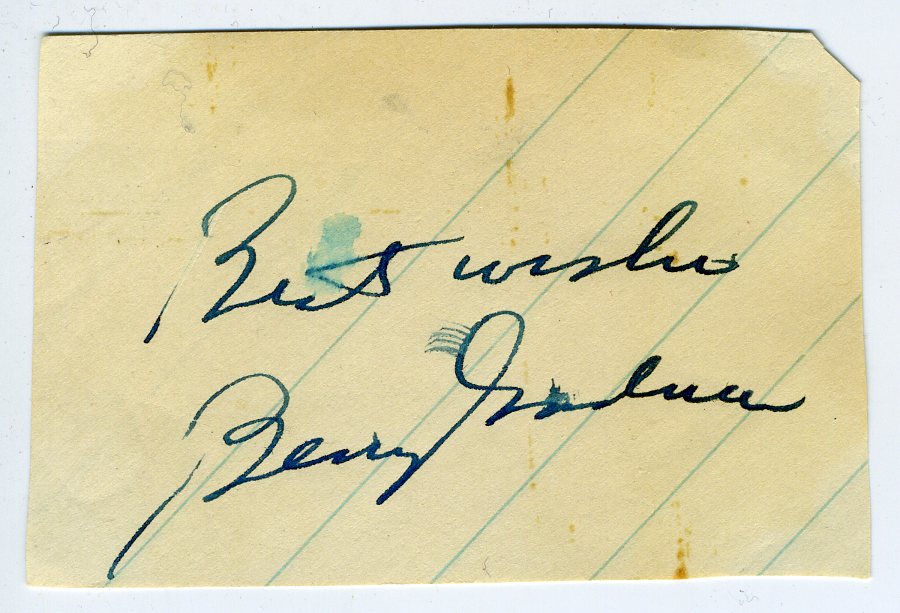 Best wishes
Benny Goodman